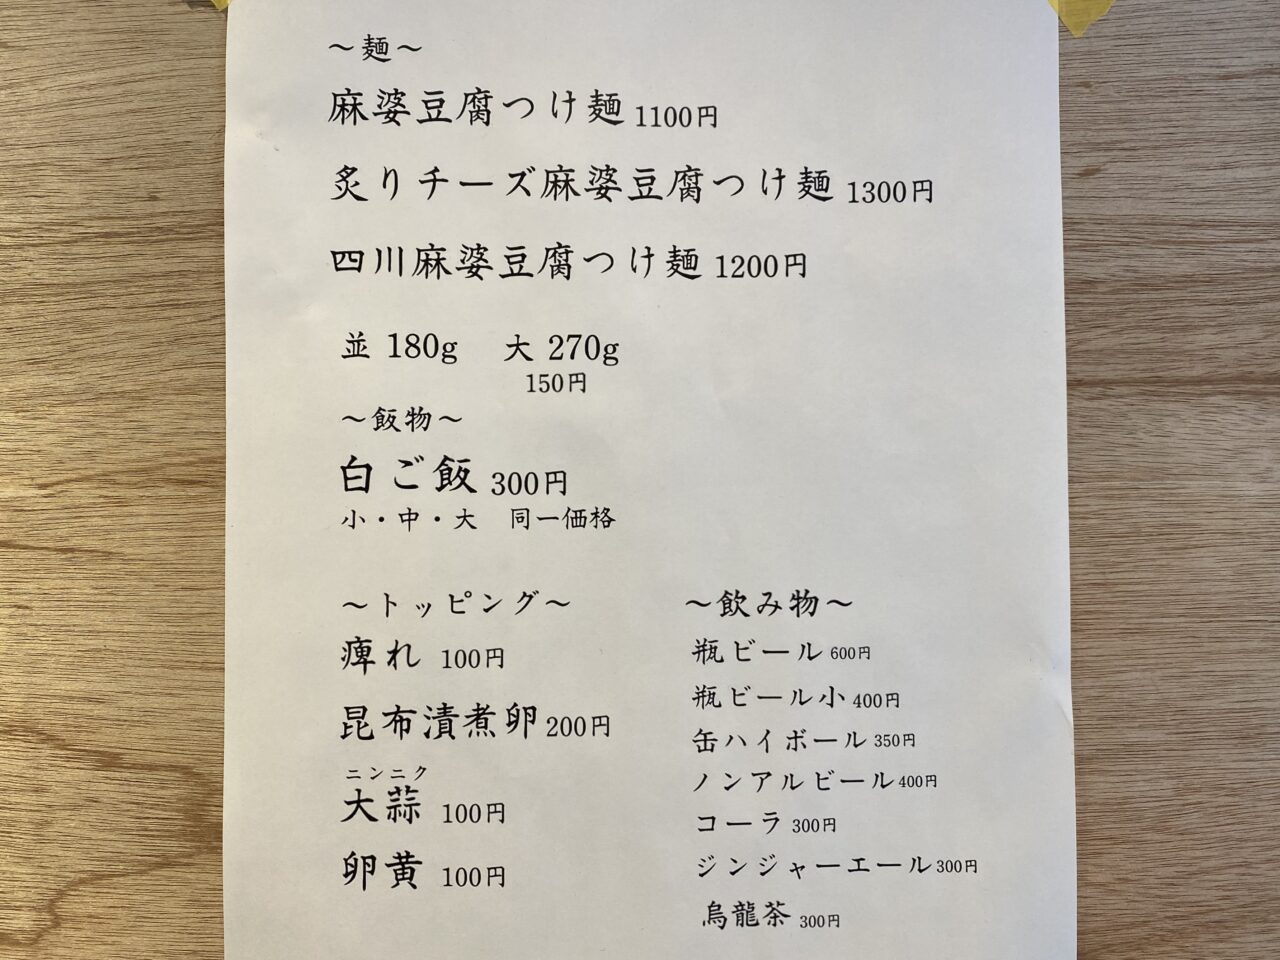 〜麺〜
麻婆豆腐つけ麺 1100円
炙りチーズ麻婆豆腐つけ麺 1300円
四川麻婆豆腐つけ麺 1200円
並 180g 大 270g
150円
〜飯物〜
白ご飯 300円
小・中・大 同一価格
〜トッピング〜
痺れ 100円
昆布漬煮卵 200円
ニンニク
大蒜 100円
卵黄 100円
〜飲み物〜
瓶ビール 600円
瓶ビール小 400円
缶ハイボール 350円
ノンアルビール 400円
コーラ 300円
ジンジャーエール 300円
烏龍茶 300円